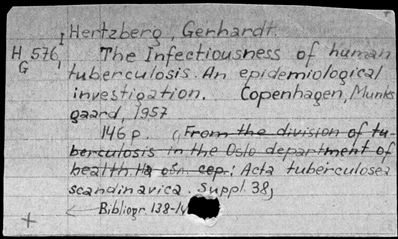 Hertzberg, Gerhardt.
H 576, I The Infectiousness of human
G tuberculosis. An epidemiological
investigation. Copenhagen, Munks
gaard, 1957
146 p. (From the division of tu-
berculosis in the Oslo department of
health : Acta tuberculosea
scandinavica. Suppl. 38)
Bibliogr. 138-